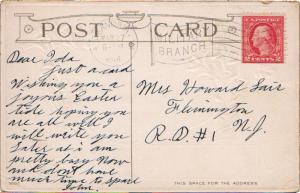 POST CARD
BRANCH
U.S. POSTAGE
2 CENTS 2
Dear Ida
Just a card
Wishing you a
joyous Easter
tide hoping you
are all well I
will write you
later as I am
pretty busy Now
and don't have
much time to spare
John.
Mrs Howard Fair
Flemington
R.D. #1 N.J.
THIS SPACE FOR THE ADDRESS